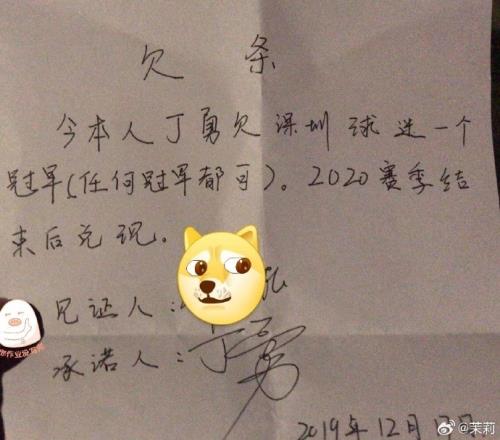 欠 条
今本人丁勇欠深圳球迷一个
冠军(任何冠军都可)。2020赛季结
束后兑现。
见证人:
承诺人:丁勇
2019年12月
@茉莉